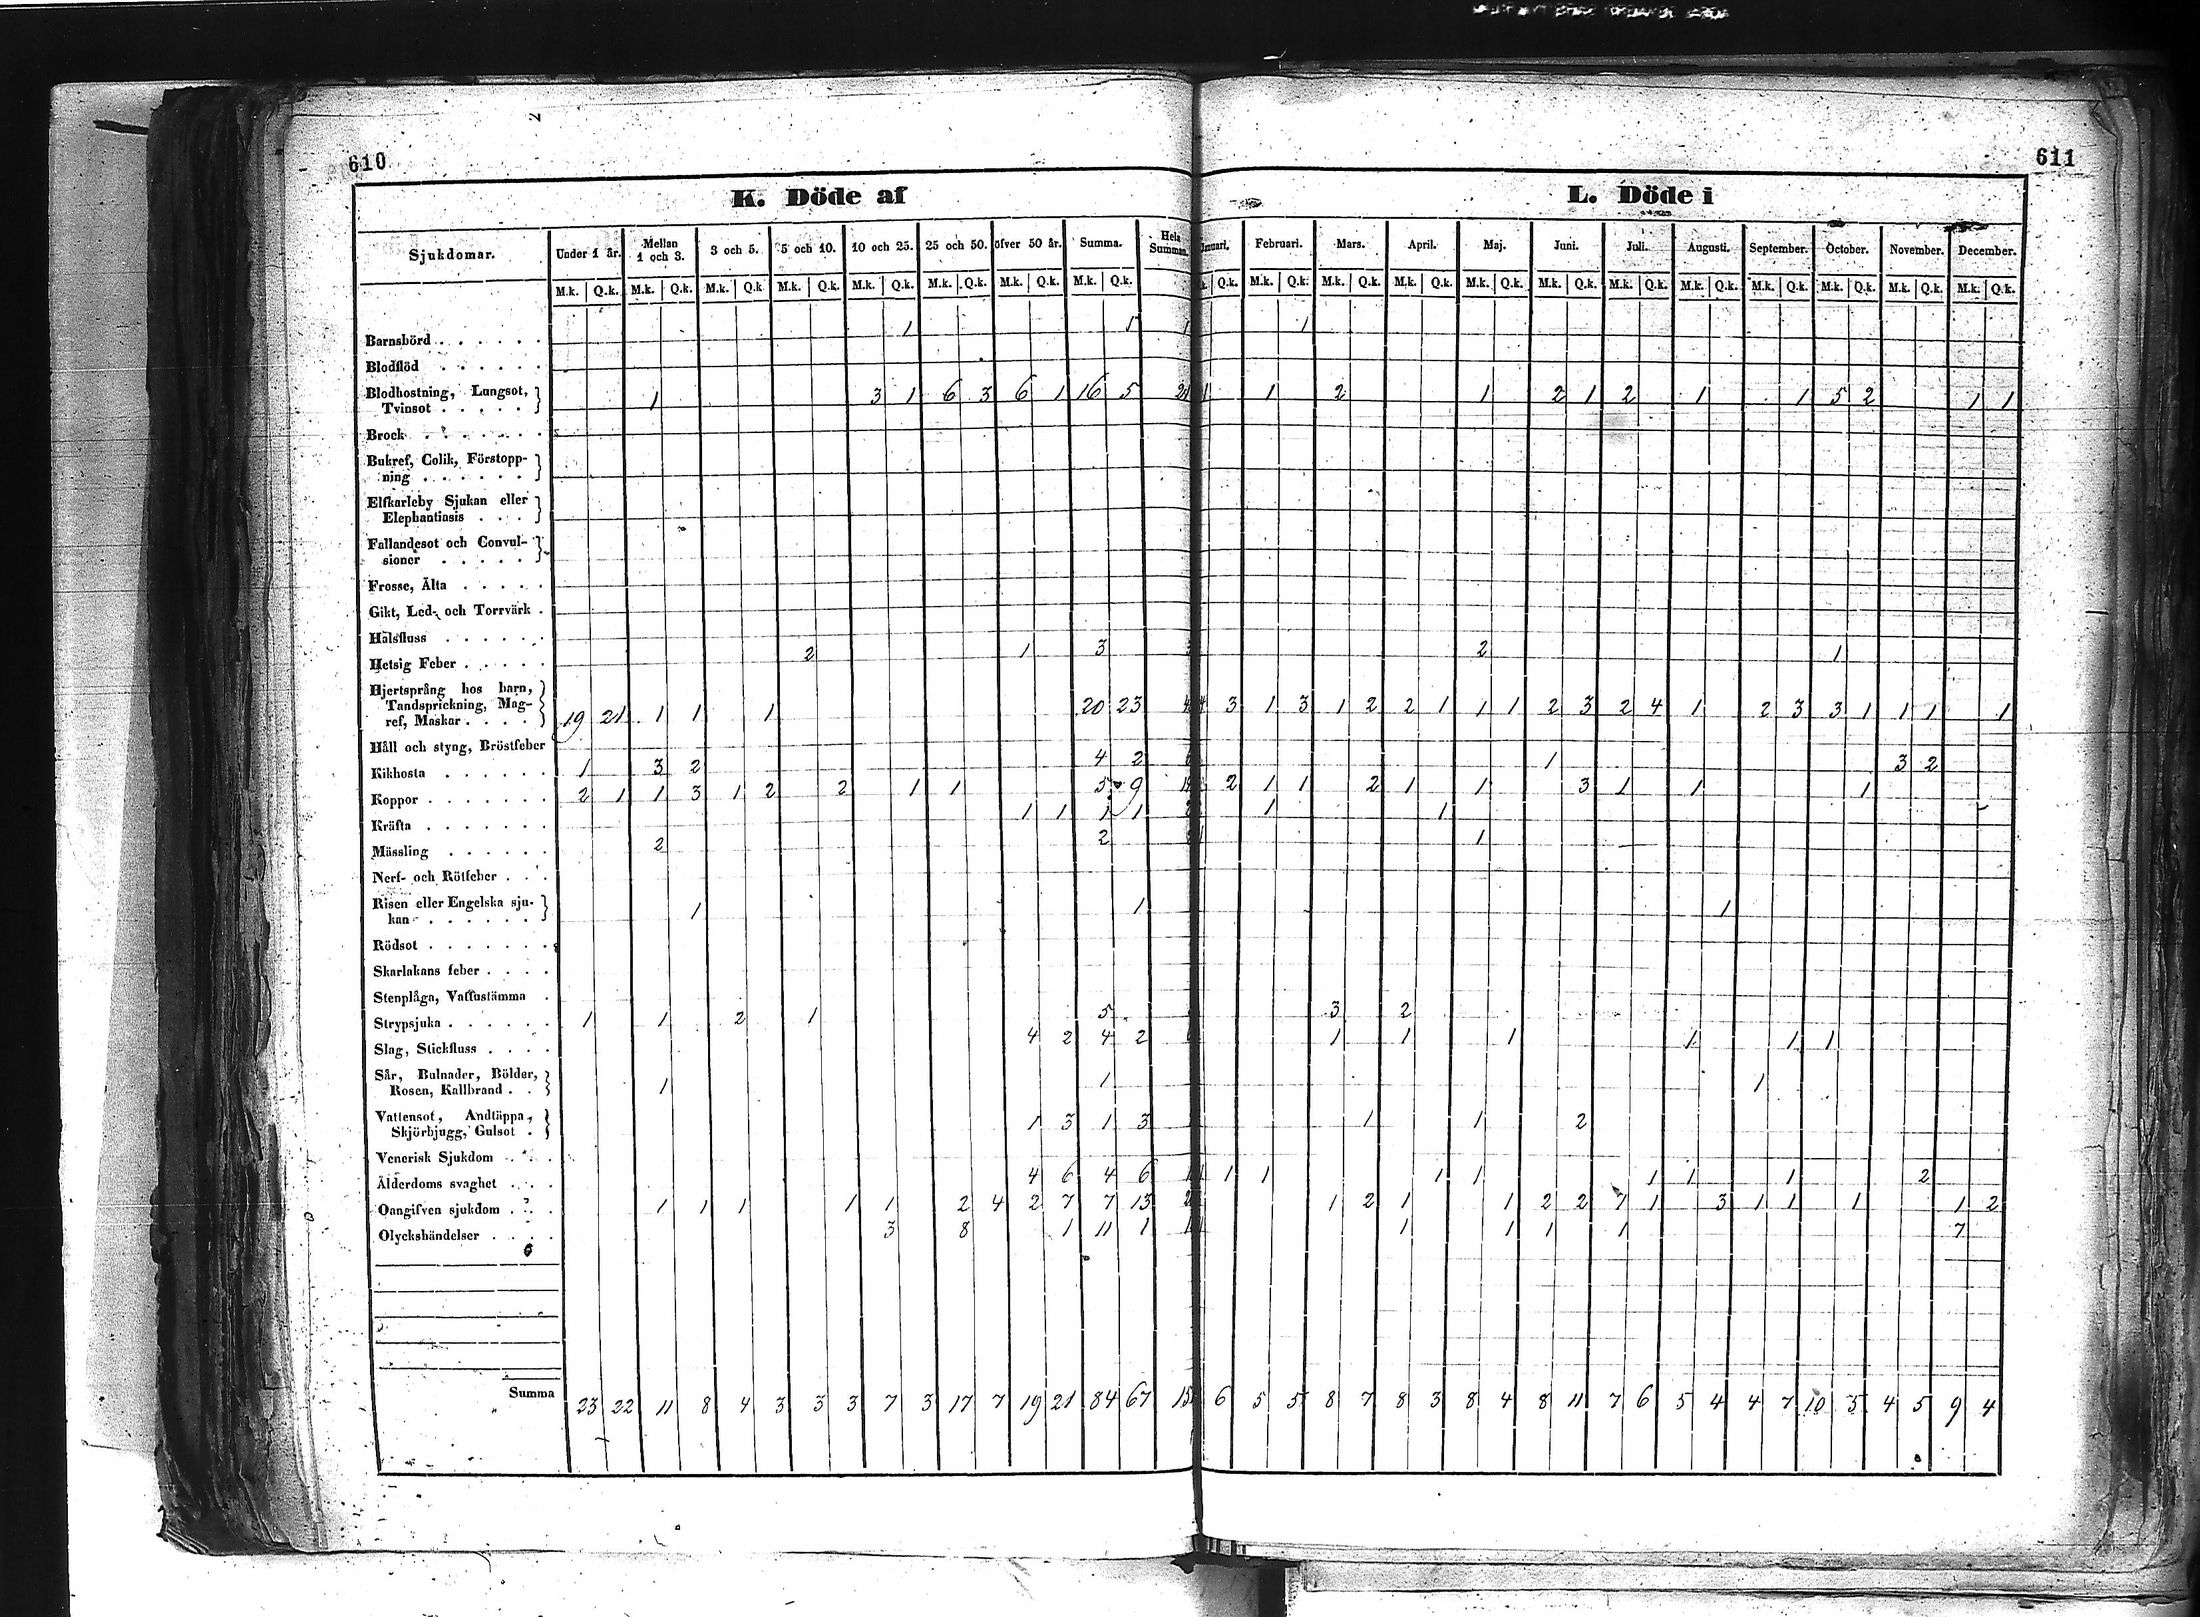 610
611
K. Döde af
L. Döde i
Sjukdomar. Under 1 år. Mellan 1 och 3. 3 och 5. 5 och 10. 10 och 25. 25 och 50. öfver 50 år. Summa. Hela Summan. Februari. Mars. April. Maj. Juni. Juli. Augusti. September. October. November. December.
M.k. Q.k. M.k. Q.k. M.k. Q.k. M.k. Q.k. M.k. Q.k. M.k. Q.k. M.k. Q.k. M.k. Q.k. Q.k. M.k. Q.k. M.k. Q.k. M.k. Q.k. M.k. Q.k. M.k. Q.k. M.k. Q.k. M.k. Q.k. M.k. Q.k. M.k. Q.k. M.k. Q.k. M.k. Q.k.
Barnsbörd 1 1 1 1
Blodflöd
Blodhostning, Lungsot,
Tvinsot 1 3 1 6 3 6 1 16 5 21 1 1 2 1 2 1 2 1 1 5 2 1 1
Brock
Bukref, Colik, Förstopp-
ning
Elfkarleby Sjukan eller
Elephantiasis
Fallandesot och Convul-
sioner
Frosse, Älta
Gikt, Led- och Torrvärk
Halsfluss
Hetsig Feber 2 1 3 3 2 1
Hjertsprång hos barn,
Tandsprickning, Mag-
ref, Maskar 19 21 1 1 1 20 23 4 3 1 3 1 2 2 1 1 1 2 3 2 4 1 2 3 3 1 1 1 1
Håll och styng, Bröstfeber
Kikhosta 1 3 2 4 2 6 1 3 2
Koppor 2 1 1 3 1 2 2 1 1 5 9 14 2 1 1 2 1 1 3 1 1 1
Kräfta 1 1 1 1 2 1 1
Mässling 2 2 2 1 1
Nerf- och Rötfeber
Risen eller Engelska sju-
kan 1 1 1
Rödsot
Skarlakans feber
Stenplåga, Vattustämma
Strypsjuka 1 1 2 1 5 3 2
Slag, Stickfluss 4 2 4 2 6 1 1 1 1 1 1
Sår, Bulnader, Bölder,
Rosen, Kallbrand 1 1 1
Vattensot, Andtäppa,
Skjörbjugg, Gulsot 1 3 1 3 1 1 2
Venerisk Sjukdom
Ålderdoms svaghet 4 6 4 6 1 1 1 1 1 1 1 1 2
Oangifven sjukdom 1 1 1 1 1 2 4 2 7 7 13 2 1 2 1 1 2 2 1 1 3 1 1 1 1 2
Olyckshändelser 3 8 1 11 1 1 1 1 1 1 7
Summa 23 22 11 8 4 3 3 3 7 3 17 7 19 21 84 67 15 6 5 5 8 7 8 3 8 4 8 11 7 6 5 4 4 7 10 5 4 5 9 4